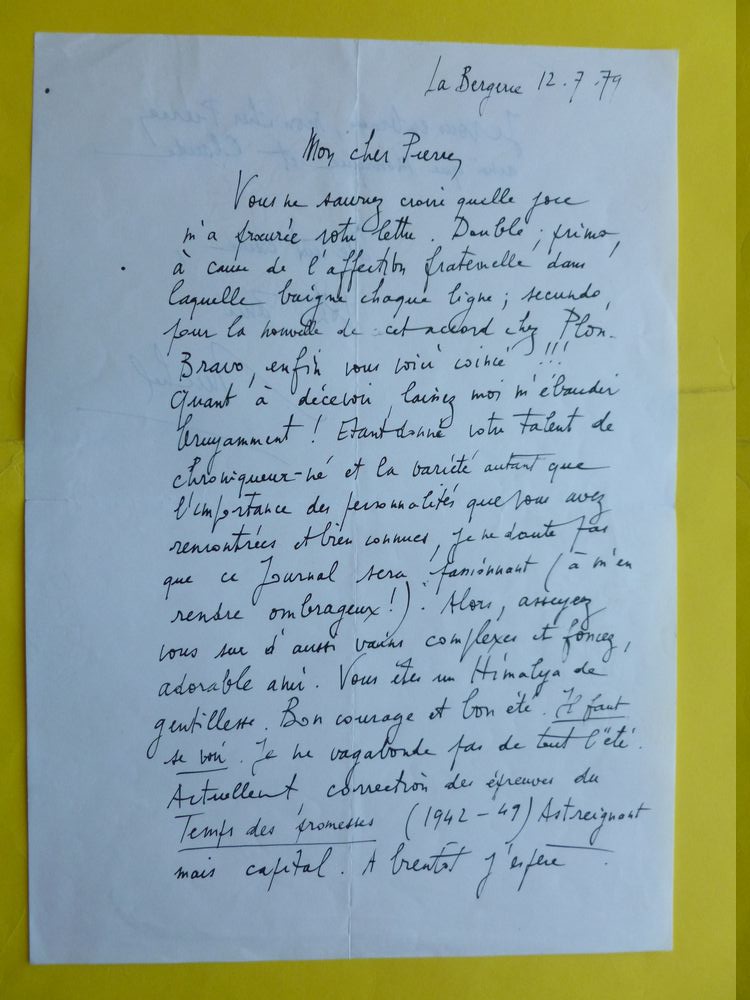 La Bergerie 12.7.79
Mon cher Pierre,
Vous ne sauriez croire quelle joie
m'a procurée votre lettre. Double ; primo,
à cause de l'affection fraternelle dans
laquelle baigne chaque ligne ; secundo,
pour la nouvelle de cet accord chez Plon.
Bravo, enfin vous voici coincé !!!
Quant à décevoir, laissez moi m'ébaudir
bruyamment ! Etant donné votre talent de
chroniqueur-né et la variété autant que
l'importance des personnalités que vous avez
rencontrées et bien connues, je ne doute pas
que ce Journal sera passionnant (à m'en
rendre ombrageux !). Alors, asseyez
vous sur d'aussi vains complexes et foncez,
adorable ami. Vous êtes un Himalya de
gentillesse. Bon courage et bon été. Il faut
se voir. Je ne vagabonde pas de tout l'été.
Actuellement correction des épreuves du
Temps des promesses (1942-49) Astreignant
mais capital. A bientôt j'espère.